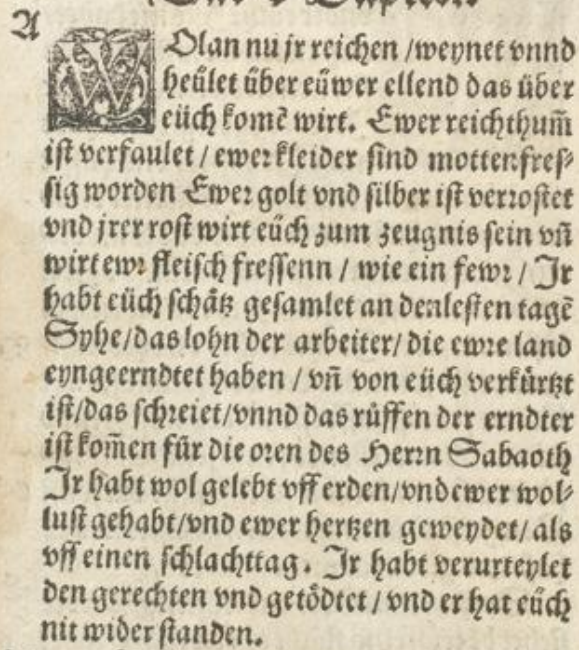 A
WOlan nu jr reichen /weynet vnnd
heület über eüwer ellend das über
eüch komẽ wirt. Ewer reichthum̃
ist verfaulet / ewer kleider sind mottenfres⸗
sig worden Ewer golt vnd silber ist verrostet
vnd jrer rost wirt eüch zum zeugnis sein vñ
wirt ewr fleisch fressenn / wie ein fewr / Jr
habt eüch schätz gesamlet an denlesten tagẽ
Syhe/das lohn der arbeiter/ die ewre land
eyngeerndtet haben / vñ von eüch verkürtzt
ist/das schreiet/vnnd das rüffen der erndter
ist kom̃en für die oren des Herrn Sabaoth
Jr habt wol gelebt vff erden/vnd ewer wol⸗
lust gehabt/vnd ewer hertzen geweydet/ als
vff einen schlachttag. Jr habt verurteylet
den gerechten vnd getödtet / vnd er hat eüch
nit wider standen.